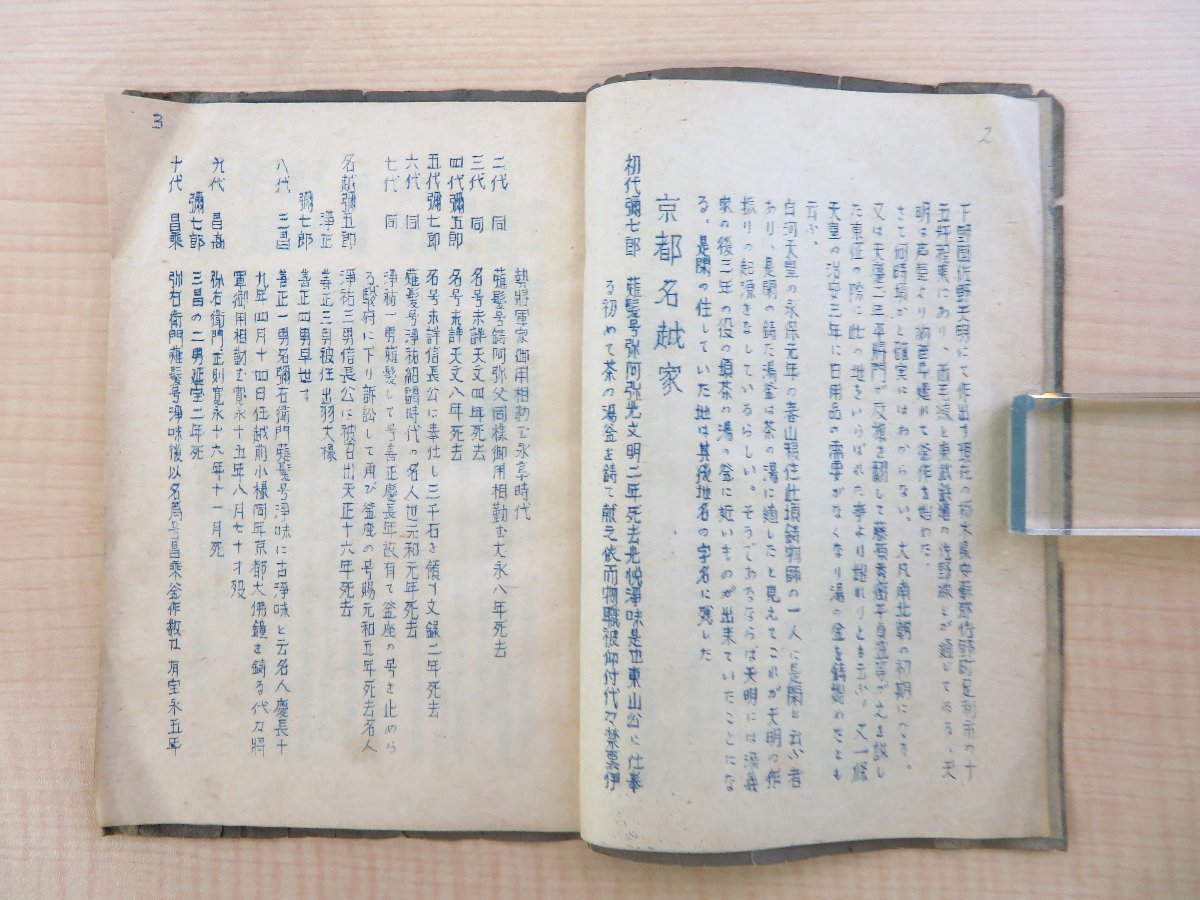 2
下野国佐野天明にて作出す現在の栃木県安蘇郡佐野町足利市の十
五粁程東にあり両毛線と東武鉄道の佐野線とが通じてゐる。天
明は芦屋より約百年遅れて釜作を始めた。
さて何時頃かと確実にはわからない。大凡南北朝の初期につくる。
又は天慶二三年将門が反旗を翻して藤原秀郷平貞盛等が之を誅し
た東征の際に此の地をいらばれた事より始れりとも云ふ。又一説
天皇の治安三年に日用品の需要がなくなり湯の釜を鋳始めたとも
云ふ。
白河天皇の永保元年の春山移住此頃鋳物師の一人に是閑と云ふ者
あり、是閑の鋳た湯釜は茶の湯に適したと見えてこれが天明の作
振りの起源をなしているらしい。そうであるならば天明には源義
家の後三年の役の頃茶の湯の釜に近いものが出来ていたことにな
る、是閑の住していた地は其後地名の字名に残した
京都名越家
初代彌七郎 薙髪号弥阿弥光文明二年死去光悦浄味是也東山公に仕奉
る初めて茶の湯釜を鋳て献之依而物職被仰付代々禁裏伊
3
勢将軍家御用相勤む永享時代
二代 同 薙髪号鋳阿弥父同様御用相勤む大永八年死去
三代 同 名号未詳天文四年死去
四代彌五郎 名号未詳天文八年死去
五代彌七郎 名号未詳信長公に奉仕し三千石を領す文録二年死去
六代 同 薙髪号浄祐紹鷗時代の名人也元和元年死去
七代 同 浄祐一男薙髪して号善正慶長年故有て釜座の号を止めら
る駿府に下り訴訟して再び釜座の号賜元和五年死去名人
名越彌五郎 浄祐三男信長公に被召出天正十六年死去
浄正 善正三男被任出羽大様
彌七郎 善正四男早世す
八代 三昌 善正一男名彌右衛門薙髪号浄味に古浄味と云名人慶長十
九年四月十四日任越前小様同年京都大佛鐘を鋳る代々将
軍御用相勤む寛永十五年八月七十才歿
九代 昌高 弥右衛門正則寛永十六年十一月死
彌七郎 三昌の二男延宝二年死
十代 昌乗 弥右衛門薙髪号浄味後以名為号昌乗釜作数在 有宝永五年